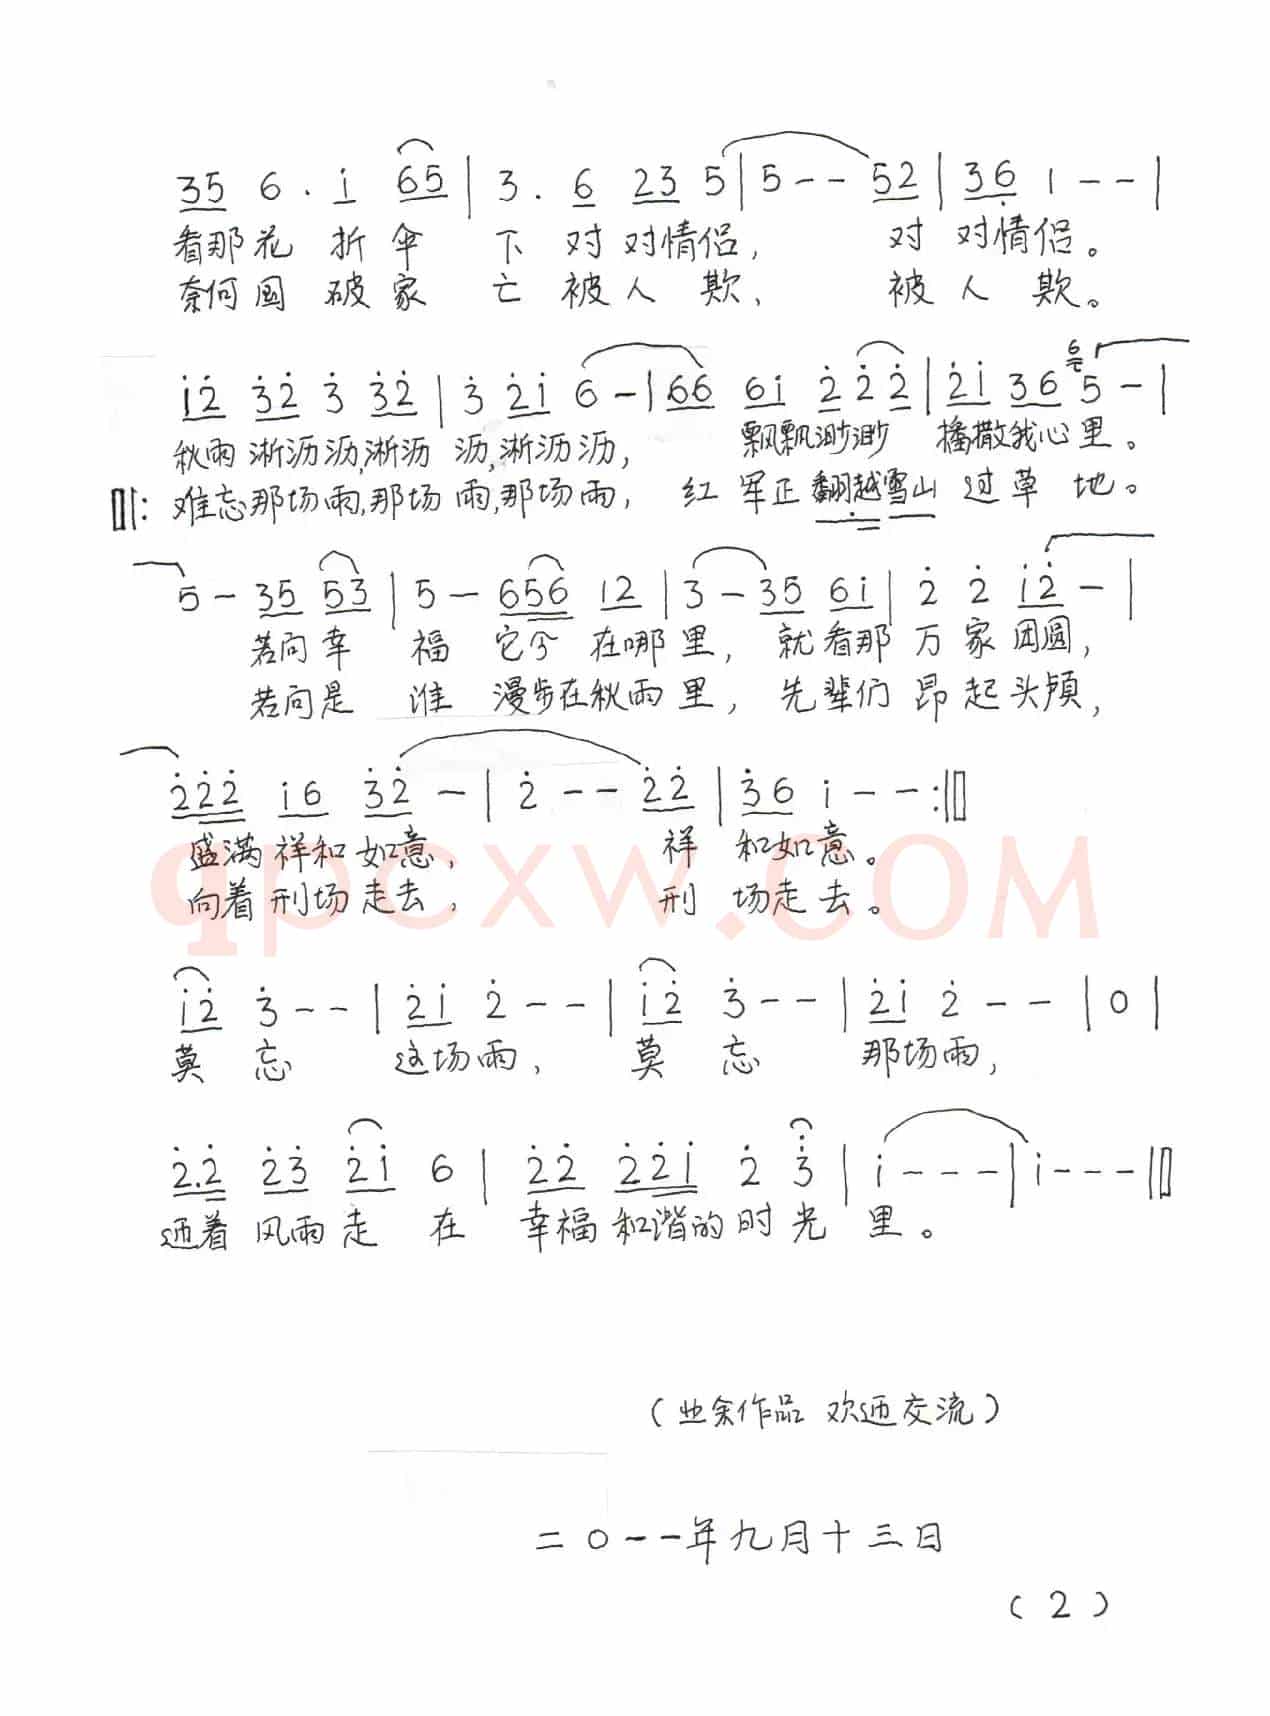 35 6. i 65 | 3. 6 23 5 | 5 - - 52 | 36 1 - - |
看那花折伞下对对情侣，对对情侣。
奈何国破家亡被人欺，被人欺。
i2 32 3 32 | 3 2i 6 - | 66 6i 2 22 | 2i 36 6 5 - |
秋雨淅沥沥,淅沥沥,淅沥沥，飘飘渺渺播撒我心里。
难忘那场雨,那场雨,那场雨，红军正翻越雪山过草地。
5 - 35 53 | 5 - 656 12 | 3 - 35 6i | 2 2 i2 - |
若问幸福它今在哪里，就看那万家团圆，
若问是谁漫步在秋雨里，先辈们昂起头颅，
222 i6 32 - | 2 - - 22 | 36 i - - :||
盛满祥和如意，祥和如意。
向着刑场走去，刑场走去。
qpcxw.COM
i2 3 - - | 2i 2 - - | i2 3 - - | 2i 2 - - | 0 |
莫忘这场雨，莫忘那场雨，
2.2 23 2i 6 | 22 22i 2 3 | i - - - | i - - - ||
迎着风雨走在幸福和谐的时光里。
（业余作品 欢迎交流）
二〇一一年九月十三日
（2）